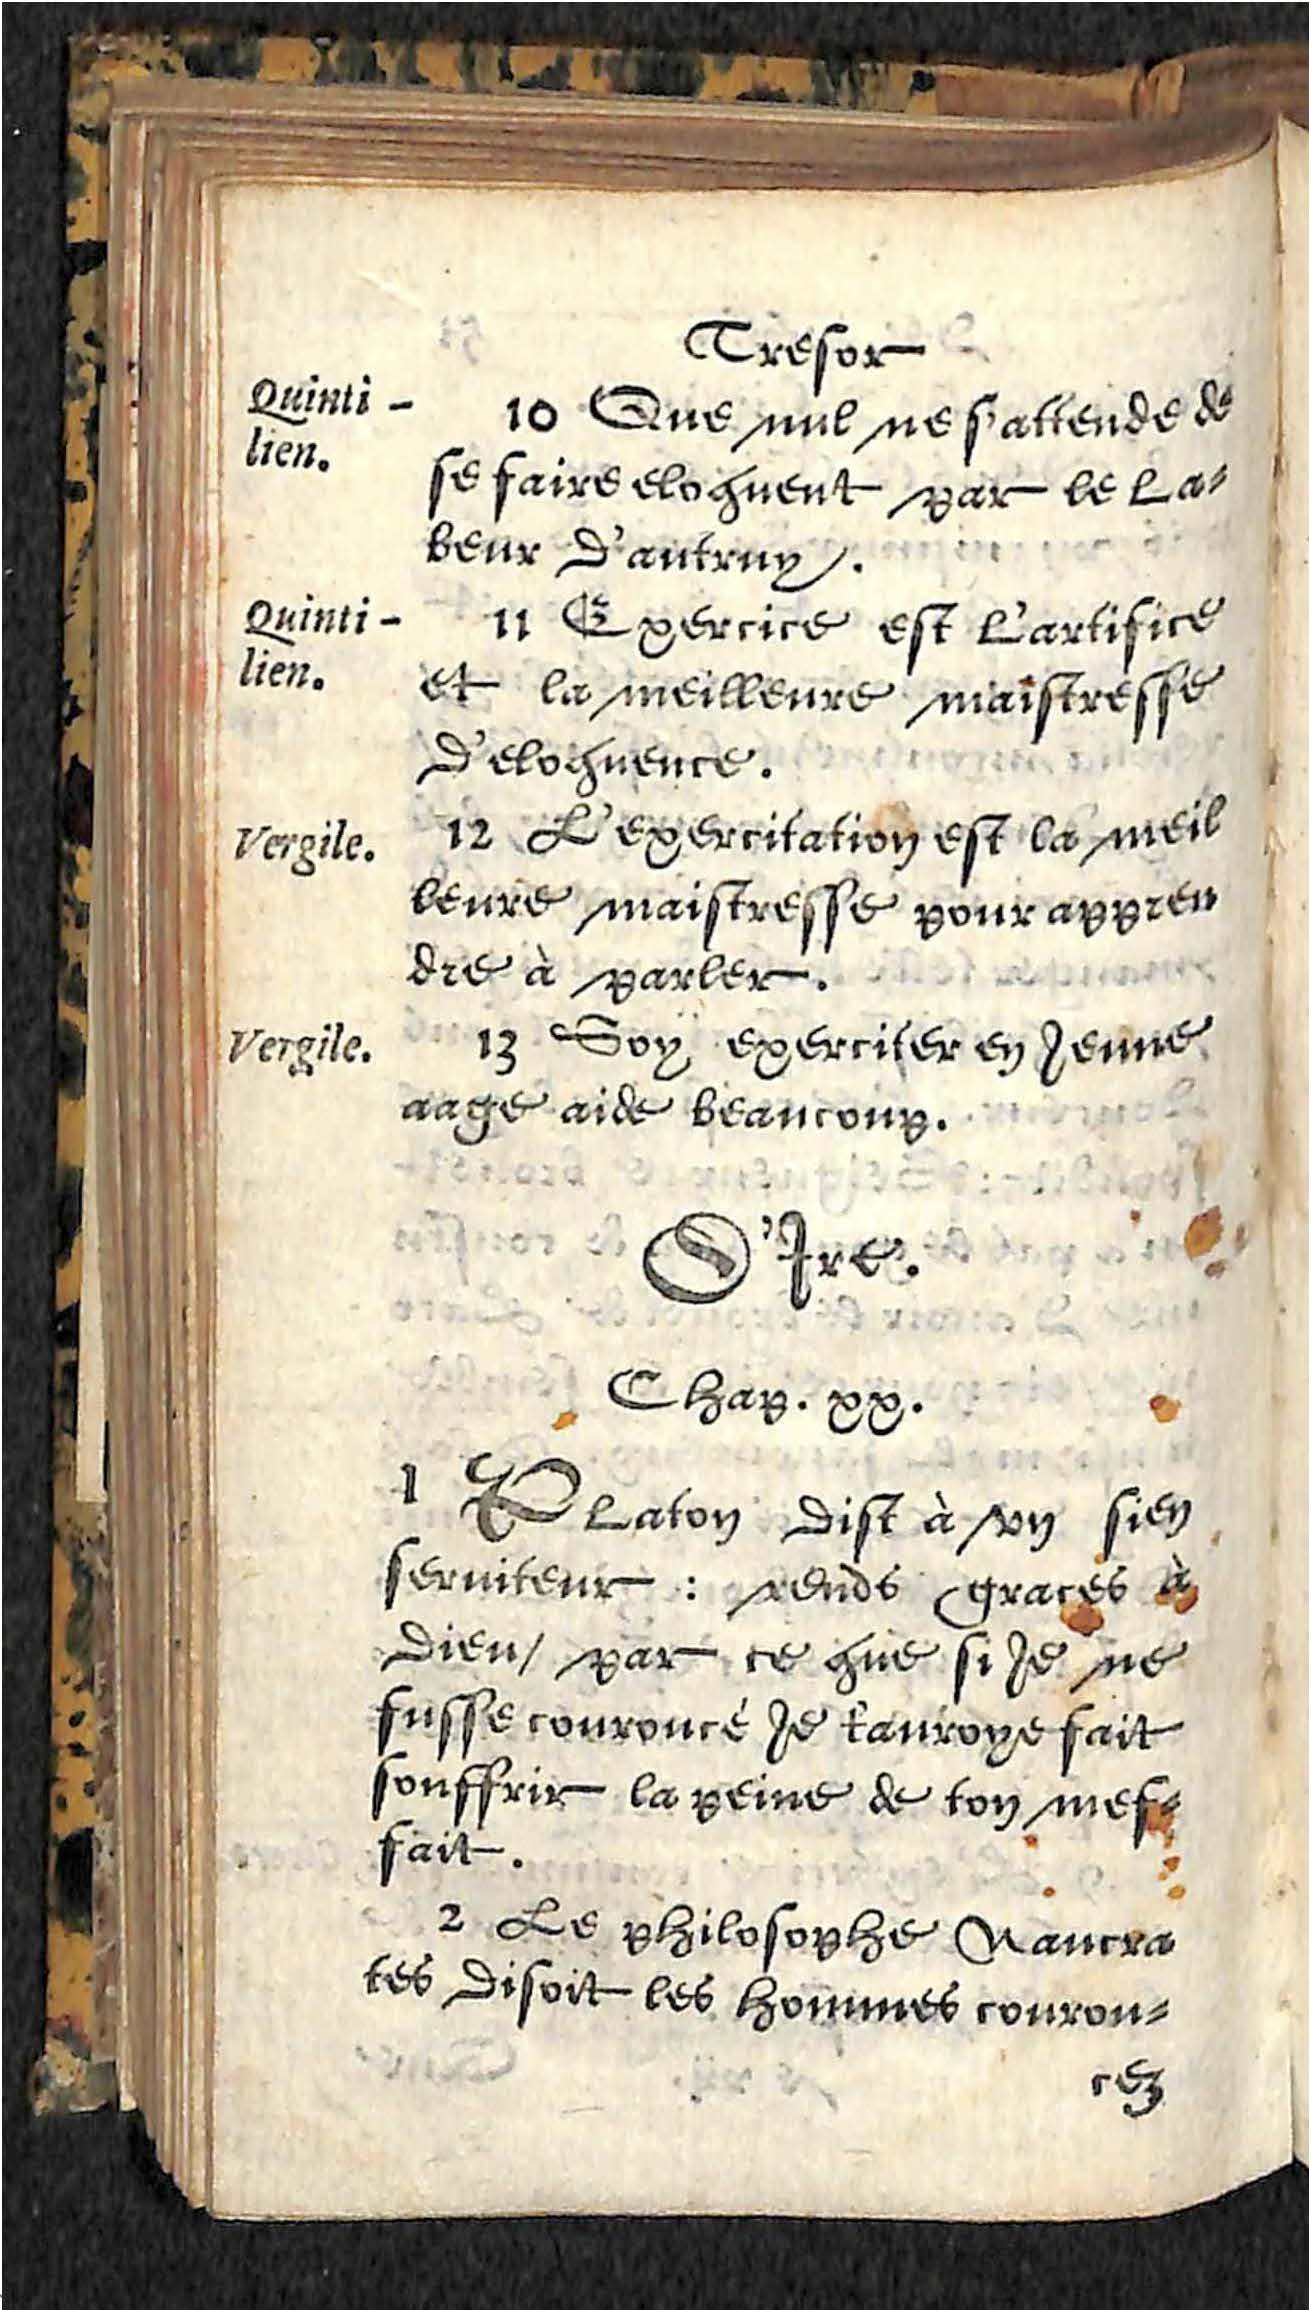 Tresor
Quinti-
lien.
10 Que nul ne s'attende de
se faire eloquent par le la-
beur d'autruy.
Quinti-
lien.
11 Exercice est l'artifice
et la meilleure maistresse
d'eloquence.
Vergile.
12 L'exercitation est la meil
leure maistresse pour appren
dre à parler.
Vergile.
13 Soy exerciter en jeune
aage aide beaucoup.
D'Ire.
Chap. xx.
1 Platon dist à vn sien
seruiteur : rends graces à
Dieu/ par ce que si je ne
fusse couroucé je t'auroye fait
souffrir la peine de ton mef-
fait.
2 Le philosophe Naucra
tes disoit les hommes courou-
cez